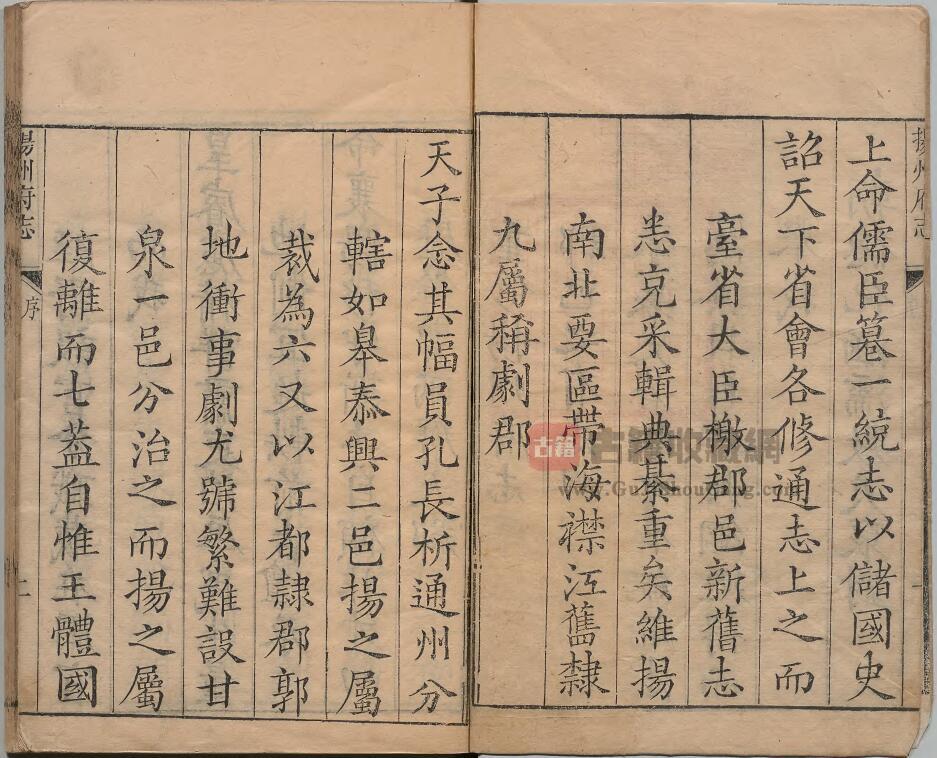 揚州府志
上命儒臣纂一統志以儲國史
詔天下省會各修通志上之而
臺省大臣檄郡邑新舊志
悉充采輯典綦重矣維揚
南北要區帶海襟江舊隸
九屬稱劇郡
天子念其幅員孔長析通州分
轄如皋泰興二邑揚之屬
裁為六又以江都隸郡郭
地衝事劇尤號繁難設甘
泉一邑分治之而揚之屬
復離而七蓋自惟王體國
揚州府志 序 二
古籍
古籍收藏网